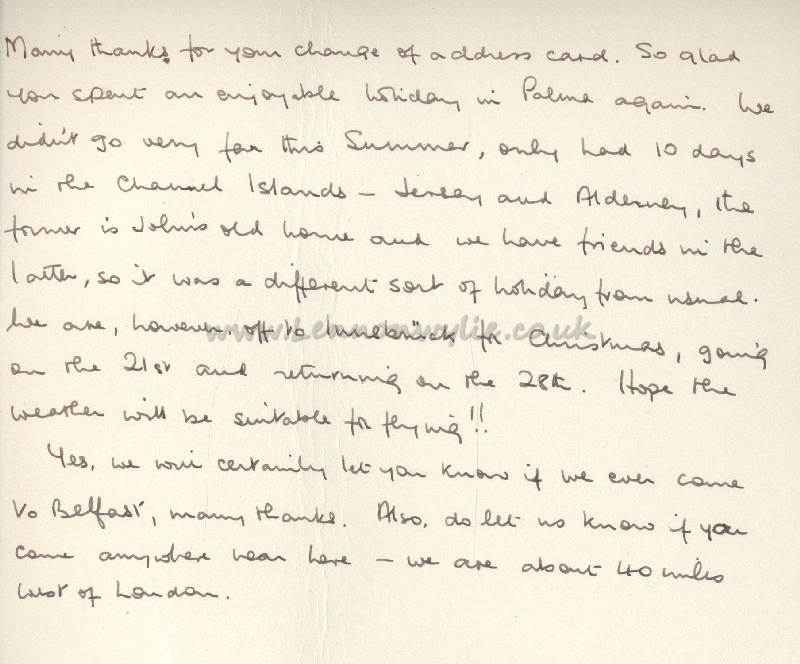 Many thanks for your change of address card. So glad
you spent an enjoyable holiday in Palma again. We
didn't go very far this Summer, only had 10 days
in the Channel Islands – Jersey and Alderney, the
former is John's old home and we have friends in the
latter, so it was a different sort of holiday from usual.
We are, however, off to Innsbruck for Christmas, going
on the 21st and returning on the 28th. Hope the
weather will be suitable for flying!!
Yes, we will certainly let you know if we ever come
to Belfast, many thanks. Also, do let us know if you
come anywhere near here – we are about 40 miles
West of London.